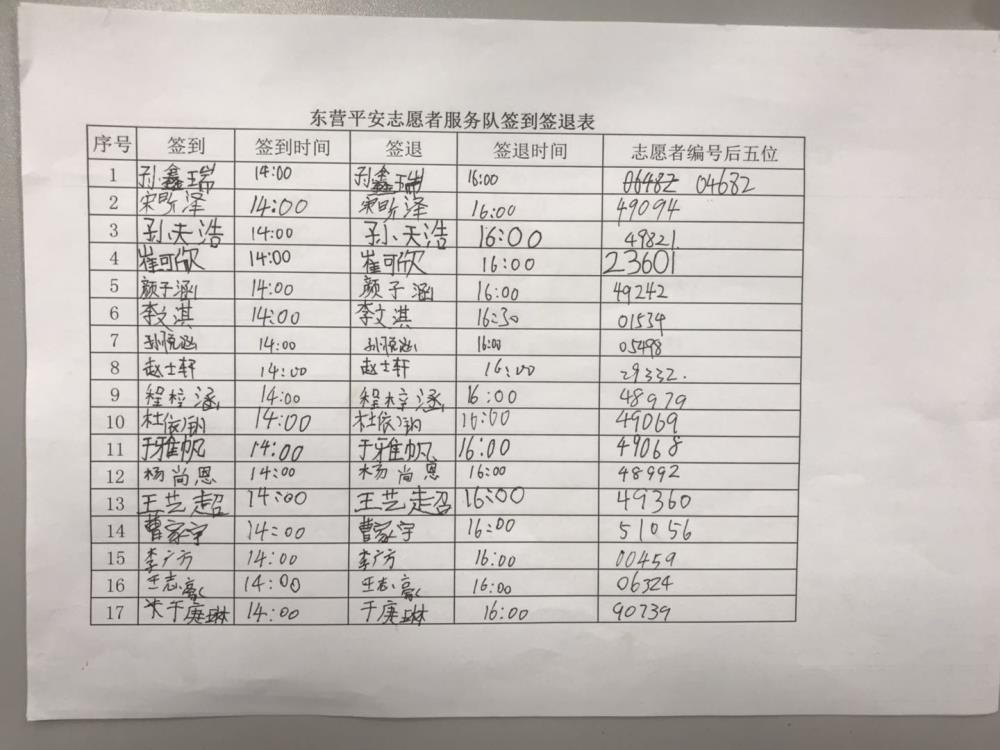 东营平安志愿者服务队签到签退表
序号 签到 签到时间 签退 签退时间 志愿者编号后五位
1 孙鑫瑞 14:00 孙鑫瑞 16:00 06482 04682
2 宋昕泽 14:00 宋昕泽 16:00 49094
3 孙天浩 14:00 孙天浩 16:00 49821
4 崔可欣 14:00 崔可欣 16:00 23601
5 颜子涵 14:00 颜子涵 16:00 49242
6 李文淇 14:00 李文淇 16:30 01534
7 孙悦涵 14:00 孙悦涵 16:00 05498
8 赵士轩 14:00 赵士轩 16:00 29332.
9 程梓涵 14:00 程梓涵 16:00 48979
10 杜依玥 14:00 杜依玥 16:00 49069
11 于雅帆 14:00 于雅帆 16:00 49068
12 杨尚恩 14:00 杨尚恩 16:00 48992
13 王艺超 14:00 王艺超 16:00 49360
14 曹家宇 14:00 曹家宇 16:00 51056
15 李广方 14:00 李广方 16:00 00459
16 王志豪 14:00 王志豪 16:00 06324
17 于庚琳 14:00 于庚琳 16:00 90739